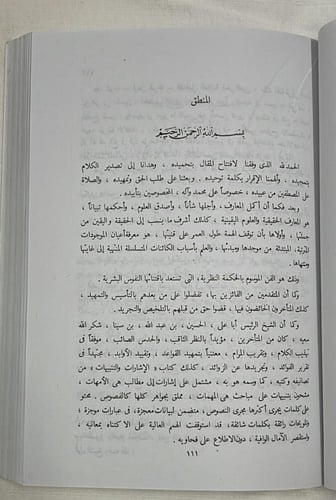 المنطق
بسم الله الرحمن الرحيم
الحمد لله الذى وفقنا لافتتاح المقال بتحميده ، وهدانا إلى تصدير الكلام
بتمجيده . وألهمنا الإقرار بكلمة توحيده . وبعثنا على طلب الحق وتمهيده ، والصلاة
على المصطفين من عبيده ، خصوصاً على محمد وآله ، المخصوصين بتأييده .
وبعد فكما أن أكمل المعارف ، وأجلها شأناً ، وأصدق العلوم ، وأحكمها تبياناً ،
هو المعارف الحقيقية والعلوم اليقينية ، كذلك أشرف ما ينسب إلى الحقيقة واليقين من
جملتها ، وأولاها بأن توقف الهمة طول العمر على قنيتها ، هو معرفة أعيان الموجودات
المترتبة ، المبتدئة من موجدها ومبدئها ، والعلم بأسباب الكائنات المتسلسلة المنتهية إلى غايتها
ومنتهاها .
وذلك هو الفن الموسوم بالحكمة النظرية ، التى تستعد باقتنائها النفوس البشرية .
وكما أن المتقدمين من الفائزين بها ، تفضلوا على من بعدهم بالتأسيس والتمهيد ،
كذلك المتأخرون الخائضون فيها ، قضوا حق من قبلهم بالتلخيص والتجريد .
وكما أن الشيخ الرئيس أبا على ، الحسين ، بن عبد الله ، بن سينا ، شكر الله
سعيه ، كان من المتأخرين ، مؤيداً بالنظر الثاقب ، والحدس الصائب ، موفقاً فى
تهذيب الكلام ، وتقريب المرام ، معتنياً بتمهيد القواعد ، وتقييد الأوابد ، مجتهداً فى
تقرير الفوائد ، وتجريدها عن الزوائد ، كذلك كتاب « الإشارات والتنبيهات » من
تصانيفه وكتبه ، كما وسمه هو به ، مشتمل على إشارات إلى مطالب هى الأمهات ،
مشحون بتنبيهات على مباحث هى المهمات ، مملوء بجواهر كلها كالفصوص ، محتو
على كلمات يجرى أكثرها مجرى النصوص ، متضمن لبيانات معجزة ، فى عبارات موجزة ،
وتلويحات رائقة بكلمات شائقة ، قد استوقفت الهمم العالية على الاكتناه بمعانيه ،
واستقصر الآمال الوافية ، دون الاطلاع على فحاويه .
١١١